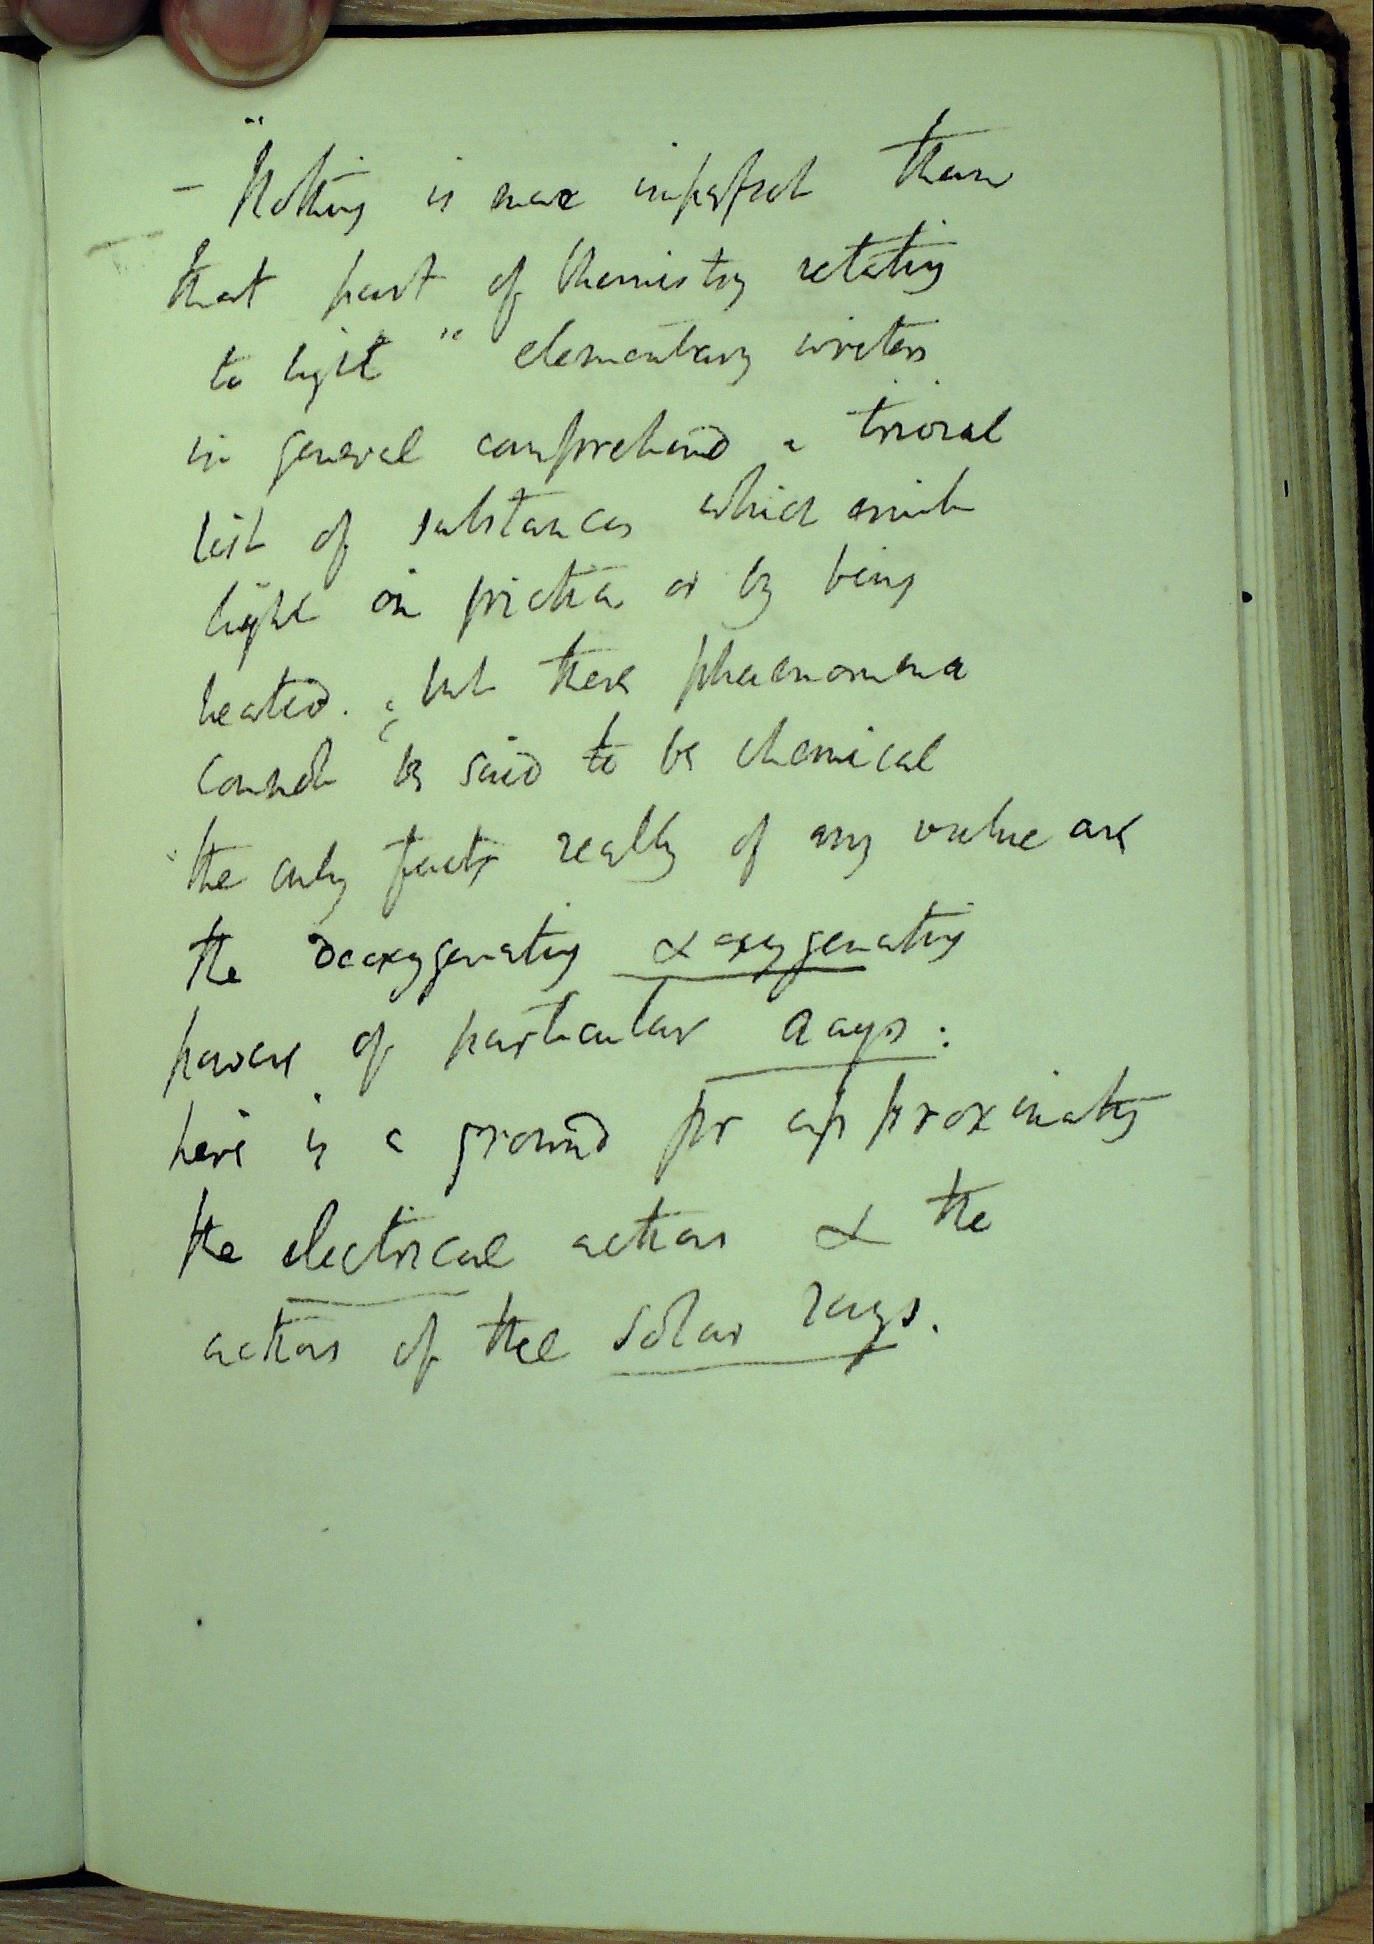 "
- Nothing is more imperfect than
that part of Chemistry relating
to light " elementary writers
in general comprehend a trivial
list of substances which emit
light on friction or by being
heated. ; but these phaenomena
cannot be said to be chemical
"the only facts really of any value are
the deoxygenating & oxygenating
powers of particular rays:
here is a ground for approximating
the electrical actions & the
actions of the solar rays.